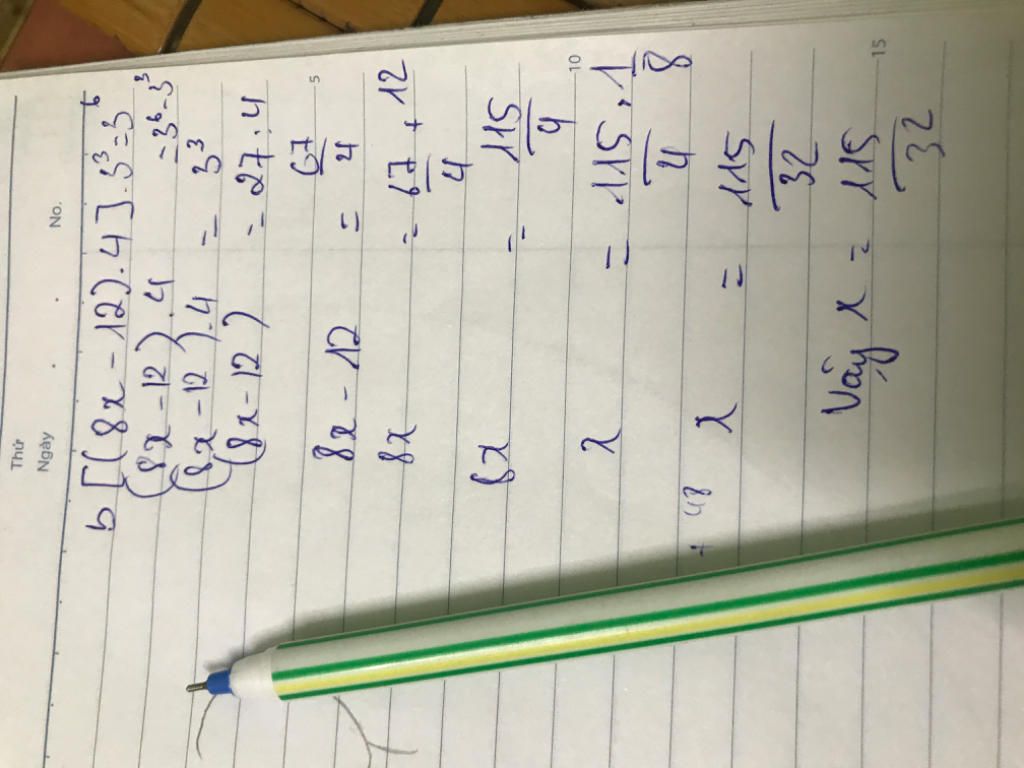 Thứ
Ngày No.
b [(8x - 12).4].3³=3⁶
(8x-12).4 = 3⁶-3³
(8x-12).4 = 3³
(8x-12) = 27.4
5
8x - 12 = 67/4
8x = 67/4 + 12
8x = 115/4
10
x = 115/4 . 1/8
+ 48
x = 115/32
Vậy x = 115/32
15